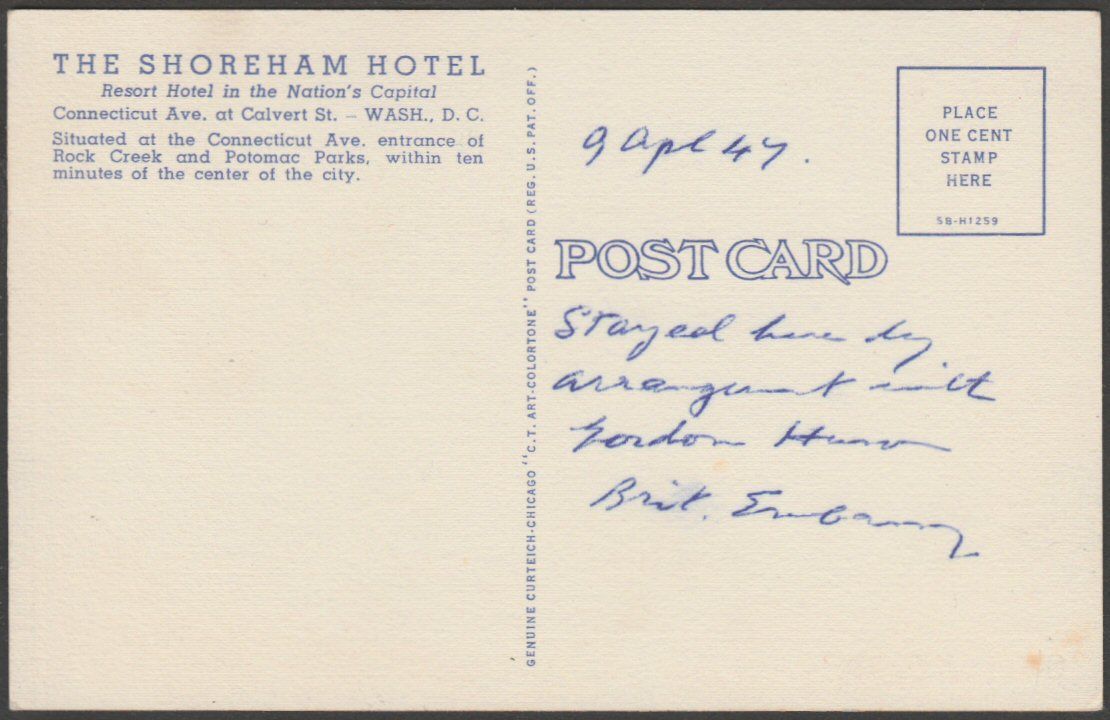 THE SHOREHAM HOTEL
Resort Hotel in the Nation's Capital
Connecticut Ave. at Calvert St. – WASH., D. C.
Situated at the Connecticut Ave. entrance of
Rock Creek and Potomac Parks, within ten
minutes of the center of the city.
GENUINE CURTEICH-CHICAGO "C.T. ART-COLORTONE" POST CARD (REG. U.S. PAT. OFF.)
PLACE
ONE CENT
STAMP
HERE
5B-H1259
9 Apl 47.
POST CARD
Stayed here by
arrangement with
Gordon
Brit. Embassy